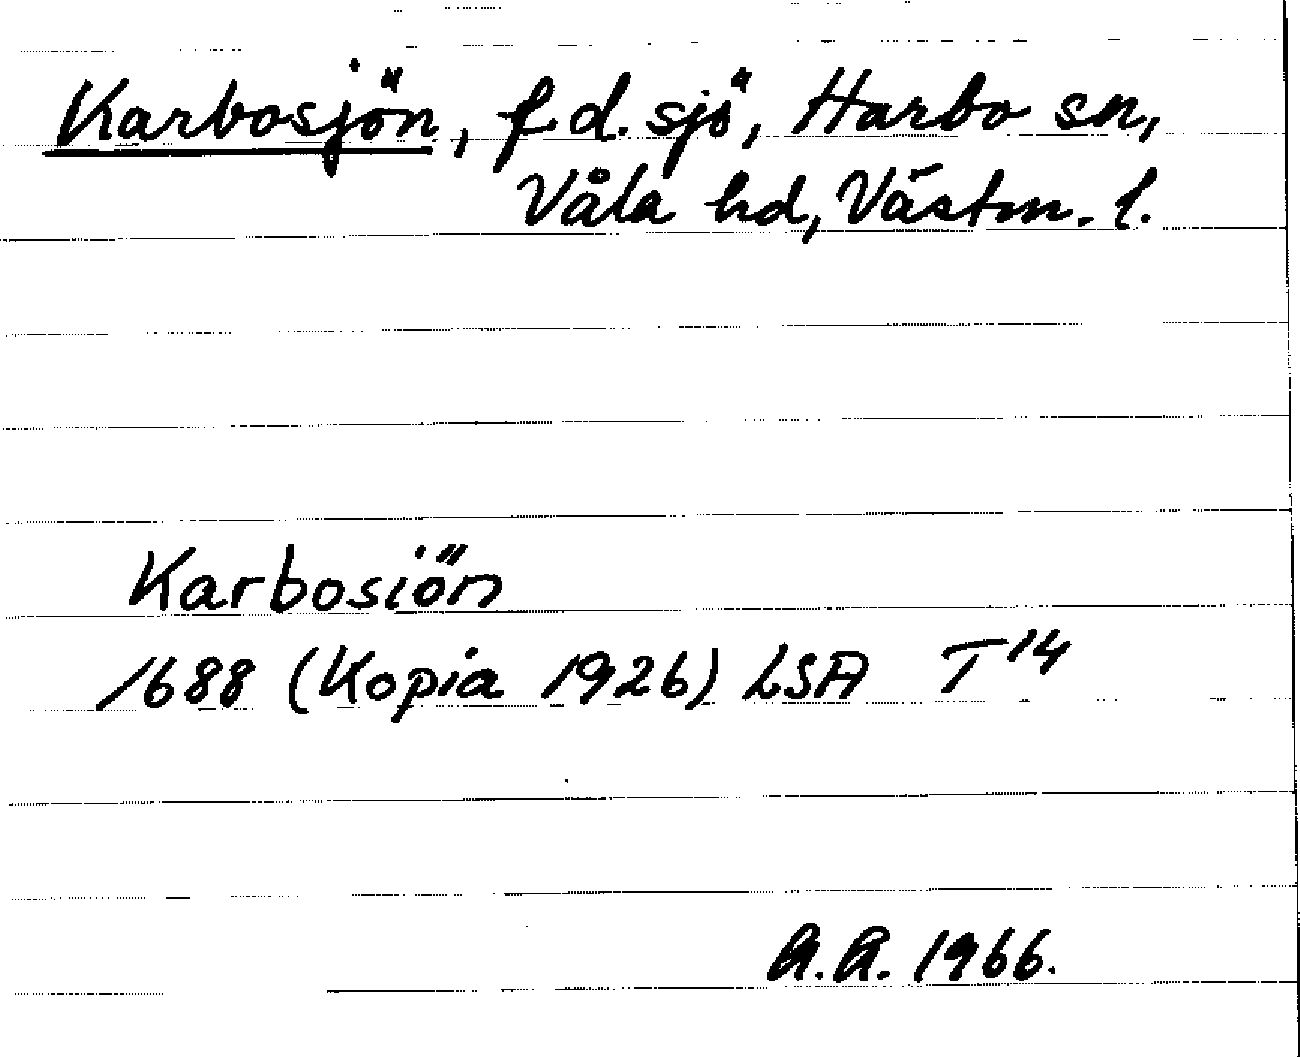 Karbosjön, f.d. sjö, Harbo sn,
Våla hd, Västm. l.
Karbosiön
1688 (Kopia 1926) LSA T 14
A.A. 1966.